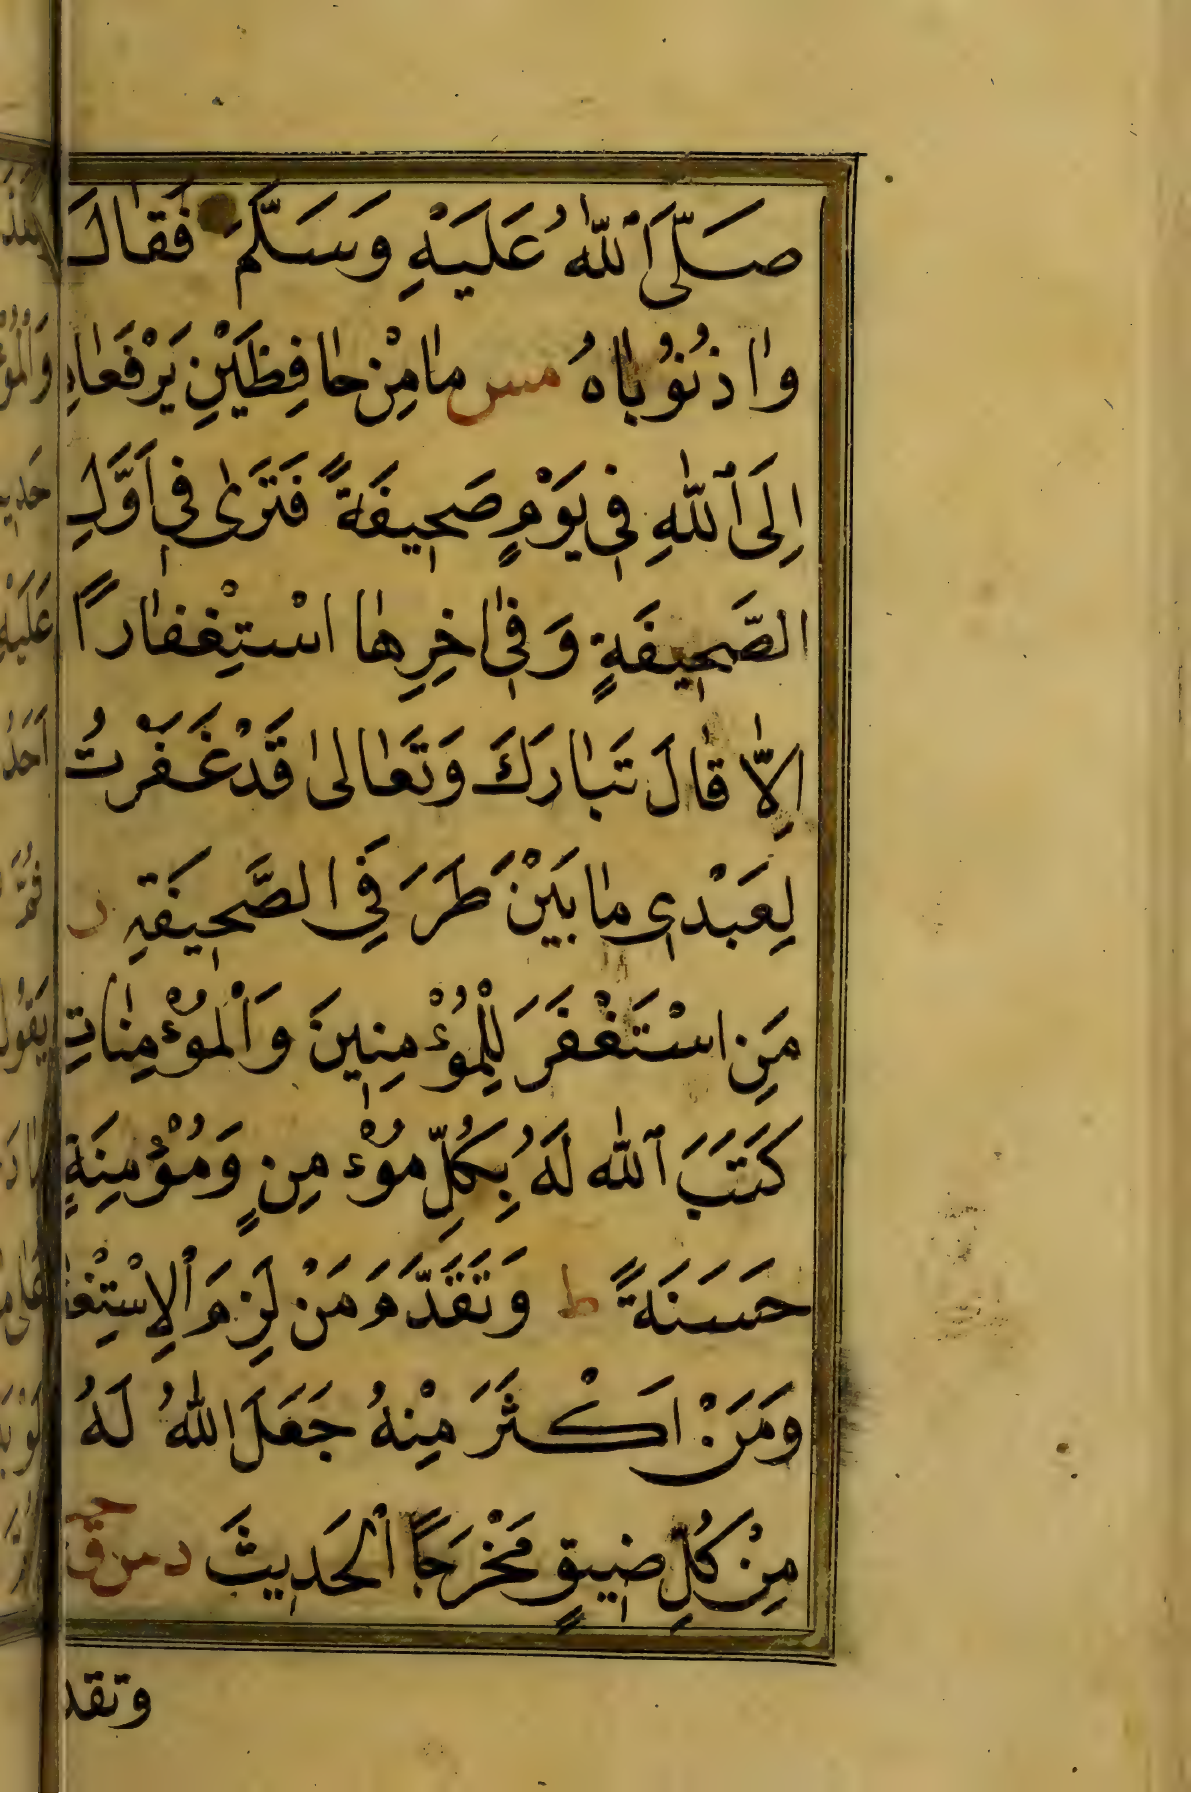 صَلَّى ٱللّٰهُ عَلَيْهِ وَسَلَّمَ فَقَالَ
وَا ذُنُوبَاهُ مس مَا مِنْ حَافِظَيْنِ يَرْفَعَانِ
اِلَى ٱللّٰهِ فِي يَوْمٍ صَحِيفَةً فَتَرٰى فِي اَوَّلِ
الصَّحِيفَةِ وَفِي اٰخِرِهَا اسْتِغْفَارًا
اِلَّا قَالَ تَبَارَكَ وَتَعَالٰى قَدْ غَفَرْتُ
لِعَبْدِي مَا بَيْنَ طَرَفَيِ الصَّحِيفَةِ ر
مَنِ اسْتَغْفَرَ لِلْمُؤْمِنِينَ وَالْمُؤْمِنَاتِ
كَتَبَ ٱللّٰه لَهُ بِكُلِّ مُؤْمِنٍ وَمُؤْمِنَةٍ
حَسَنَةً ط وَتَقَدَّمَ مَنْ لَزِمَ الْاِسْتِغْفَ
وَمَنْ اَكْثَرَ مِنْهُ جَعَلَ اللّٰهُ لَهُ
مِنْ كُلِّ ضِيقٍ مَخْرَجًا اَلْحَدِيثَ د س ق حب
وتقد